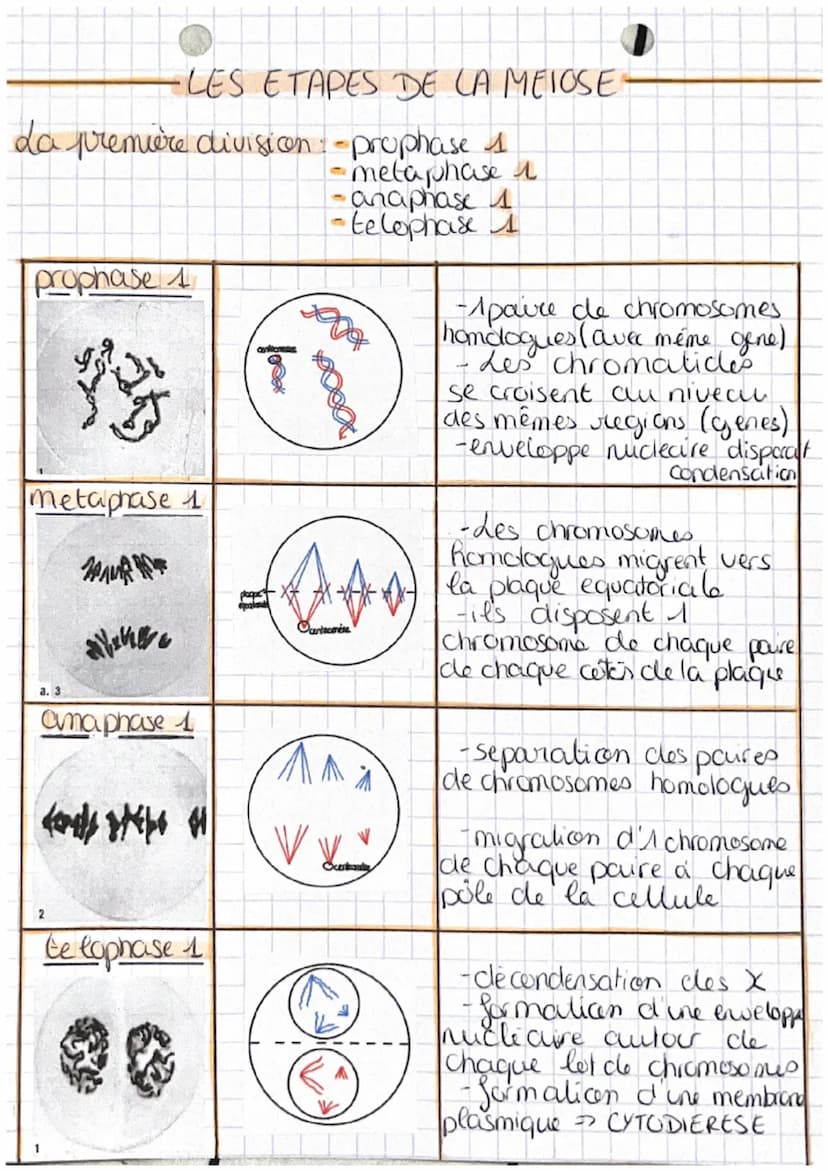 LES ETAPES DE LA MEIOSE
La première division : - prophase 1
- metaphase 1
- anaphase 1
- telophase 1
prophase 1
centromere
- 1 paire de chromosomes
homologues (avec même gene)
- Les chromatides
se croisent au niveau
des mêmes regions (gènes)
- enveloppe nucleaire disparait
condensation
metaphase 1
a. 3
plaque
equatoriale
centromère
- Les chromosomes
homologues migrent vers
la plaque equatoriale
- ils disposent 1
chromosome de chaque paire
de chaque côtés de la plaque
anaphase 1
2
centromère
- separation des paires
de chromosomes homologues
- migration d'1 chromosome
de chaque paire à chaque
pôle de la cellule
telophase 1
1
- décondensation des X
- formation d'une envelopp
nucléaire autour de
chaque lot de chromosomes
- formation d'une membrane
plasmique => CYTODIERESE